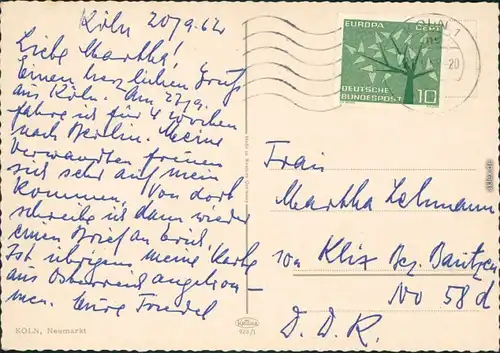 Köln 20/9.62
Liebe Martha!
Einen herzlichen Gruß
aus Köln. Am 27/9.
fahre ich für 4 Wochen
nach Berlin. Meine
Verwandten freuen
sich sehr auf mein
Kommen. Von dort
schreibe ich dann wieder
einen Brief an Euch.
Ist übrigens meine Karte
aus Österreich angekom-
men. Eure Friedel
KÖLN, Neumarkt
EUROPA CEPT
DEUTSCHE
BUNDESPOST 10
Frau
Martha Lehmann
10a Klix Bez. Bautzen
No 58d
D.D.R.